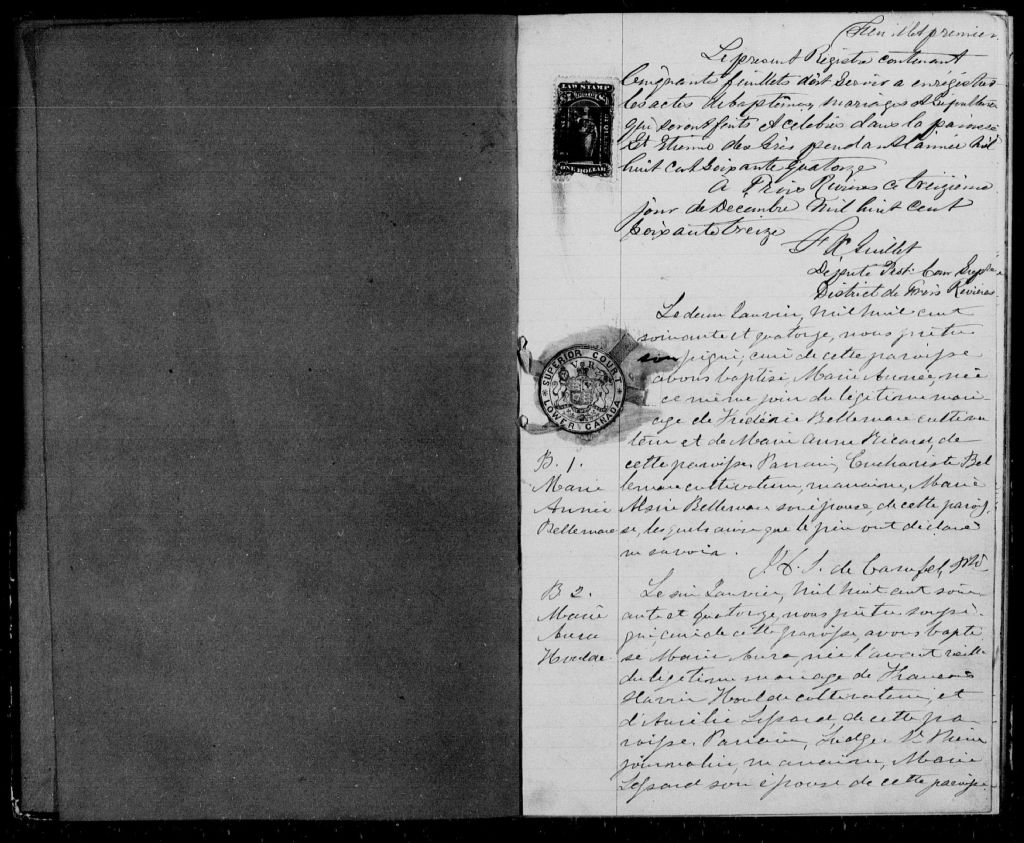 Feuillet premier
Le présent Régistre contenant
Cinquante feuillets doit servir a enrégistrer
les actes de baptêmes, mariages et Sepultures
qui seront faits et célébrés dans la paroisse
St Etienne des Grès pendant l'année Mil
huit cent Soixante quatorze
A Trois Rivières ce treizième
jour de Decembre Mil huit cent
soixante treize
LAW STAMP
ONE DOLLAR
Guillet
Député Prot. Cour Supre
District de Trois Rivières
SUPERIOR COURT
LOWER CANADA
V R
Le deux Janvier, mil huit cent
soixante et quatorze, nous prêtre
soussigné, curé de cette paroisse
avons baptisé, Marie Année, née
ce même jour du légitime mari-
age de Frédéric Bellemare cultiva
teur et de Marie Anne Ricard, de
B. 1.
Marie
Année
Bellemare
cette paroisse. Parrain, Eucharist Bel
lemare cultivateur, marraine, Marie
Bellemare son épouse, de cette parois
se, lesquels ainsi que le père ont déclaré
ne savoir.
J. H. S. de Carufel, Ptre
B 2.
Marie
Aura
Houlde
Le six Janvier, mil huit cent soix-
ante et quatorze, nous prêtre soussi-
gné, curé de cette paroisse, avons bapti
sé Marie Aura, née l'avant veille
du légitime mariage de François
Xavier Houlde cultivateur, et
d'Aurélie Lesard, de cette pa-
roisse. Parrain, Ludger
journalier, marraine, Marie
Lesard son épouse de cette paroisse